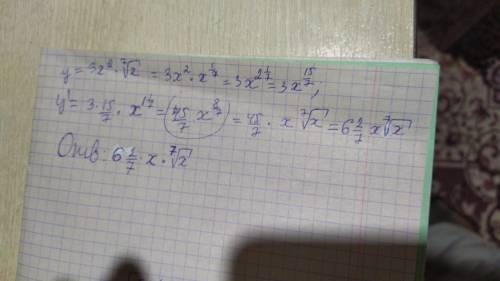 y = 3x² · ⁷√x = 3x² · x^(1/7) = 3x^(2 1/7) = 3x^(15/7);
y' = 3 · 15/7 · x^(1 1/7) = (45/7 x^(8/7)) = 45/7 · x ⁷√x = 6 3/7 x ⁷√x
Отв: 6 3/7 · x · ⁷√x